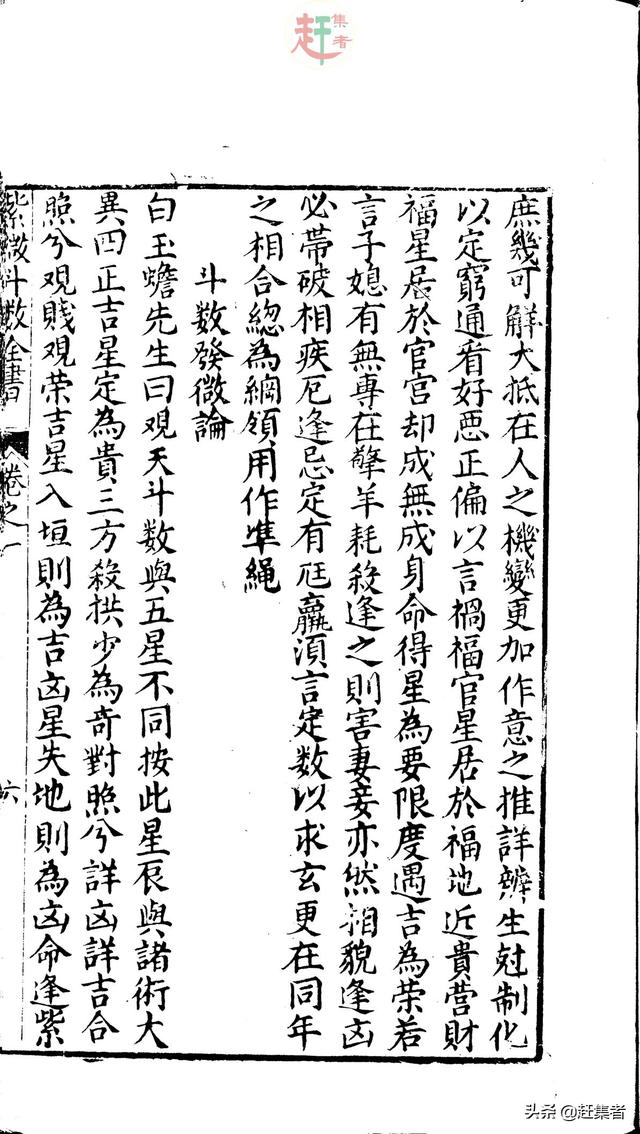 赶集者
庶幾可觧大抵在人之機變更加作意之推詳辨生尅制化
以定窮通看好惡正偏以言禍福官星居於福地近貴营財
福星居於官宫却成無成身命得星為要限度遇吉為荣若
言子媳有無專在擎羊耗殺逢之則害妻妾亦然相貌逢凶
必帯破相疾厄逢忌定有尫羸須言定数以求玄更在同年
之相合総為綱領用作凖繩
斗数發微論
白玉蟾先生曰观天斗数與五星不同按此星辰與諸術大
異四正吉星定為貴三方殺拱少為奇對照兮詳凶詳吉合
照兮观賎观荣吉星入垣則為吉凶星失地則為凶命逢紫
紫微斗数全書 卷之一 六
头条 @赶集者